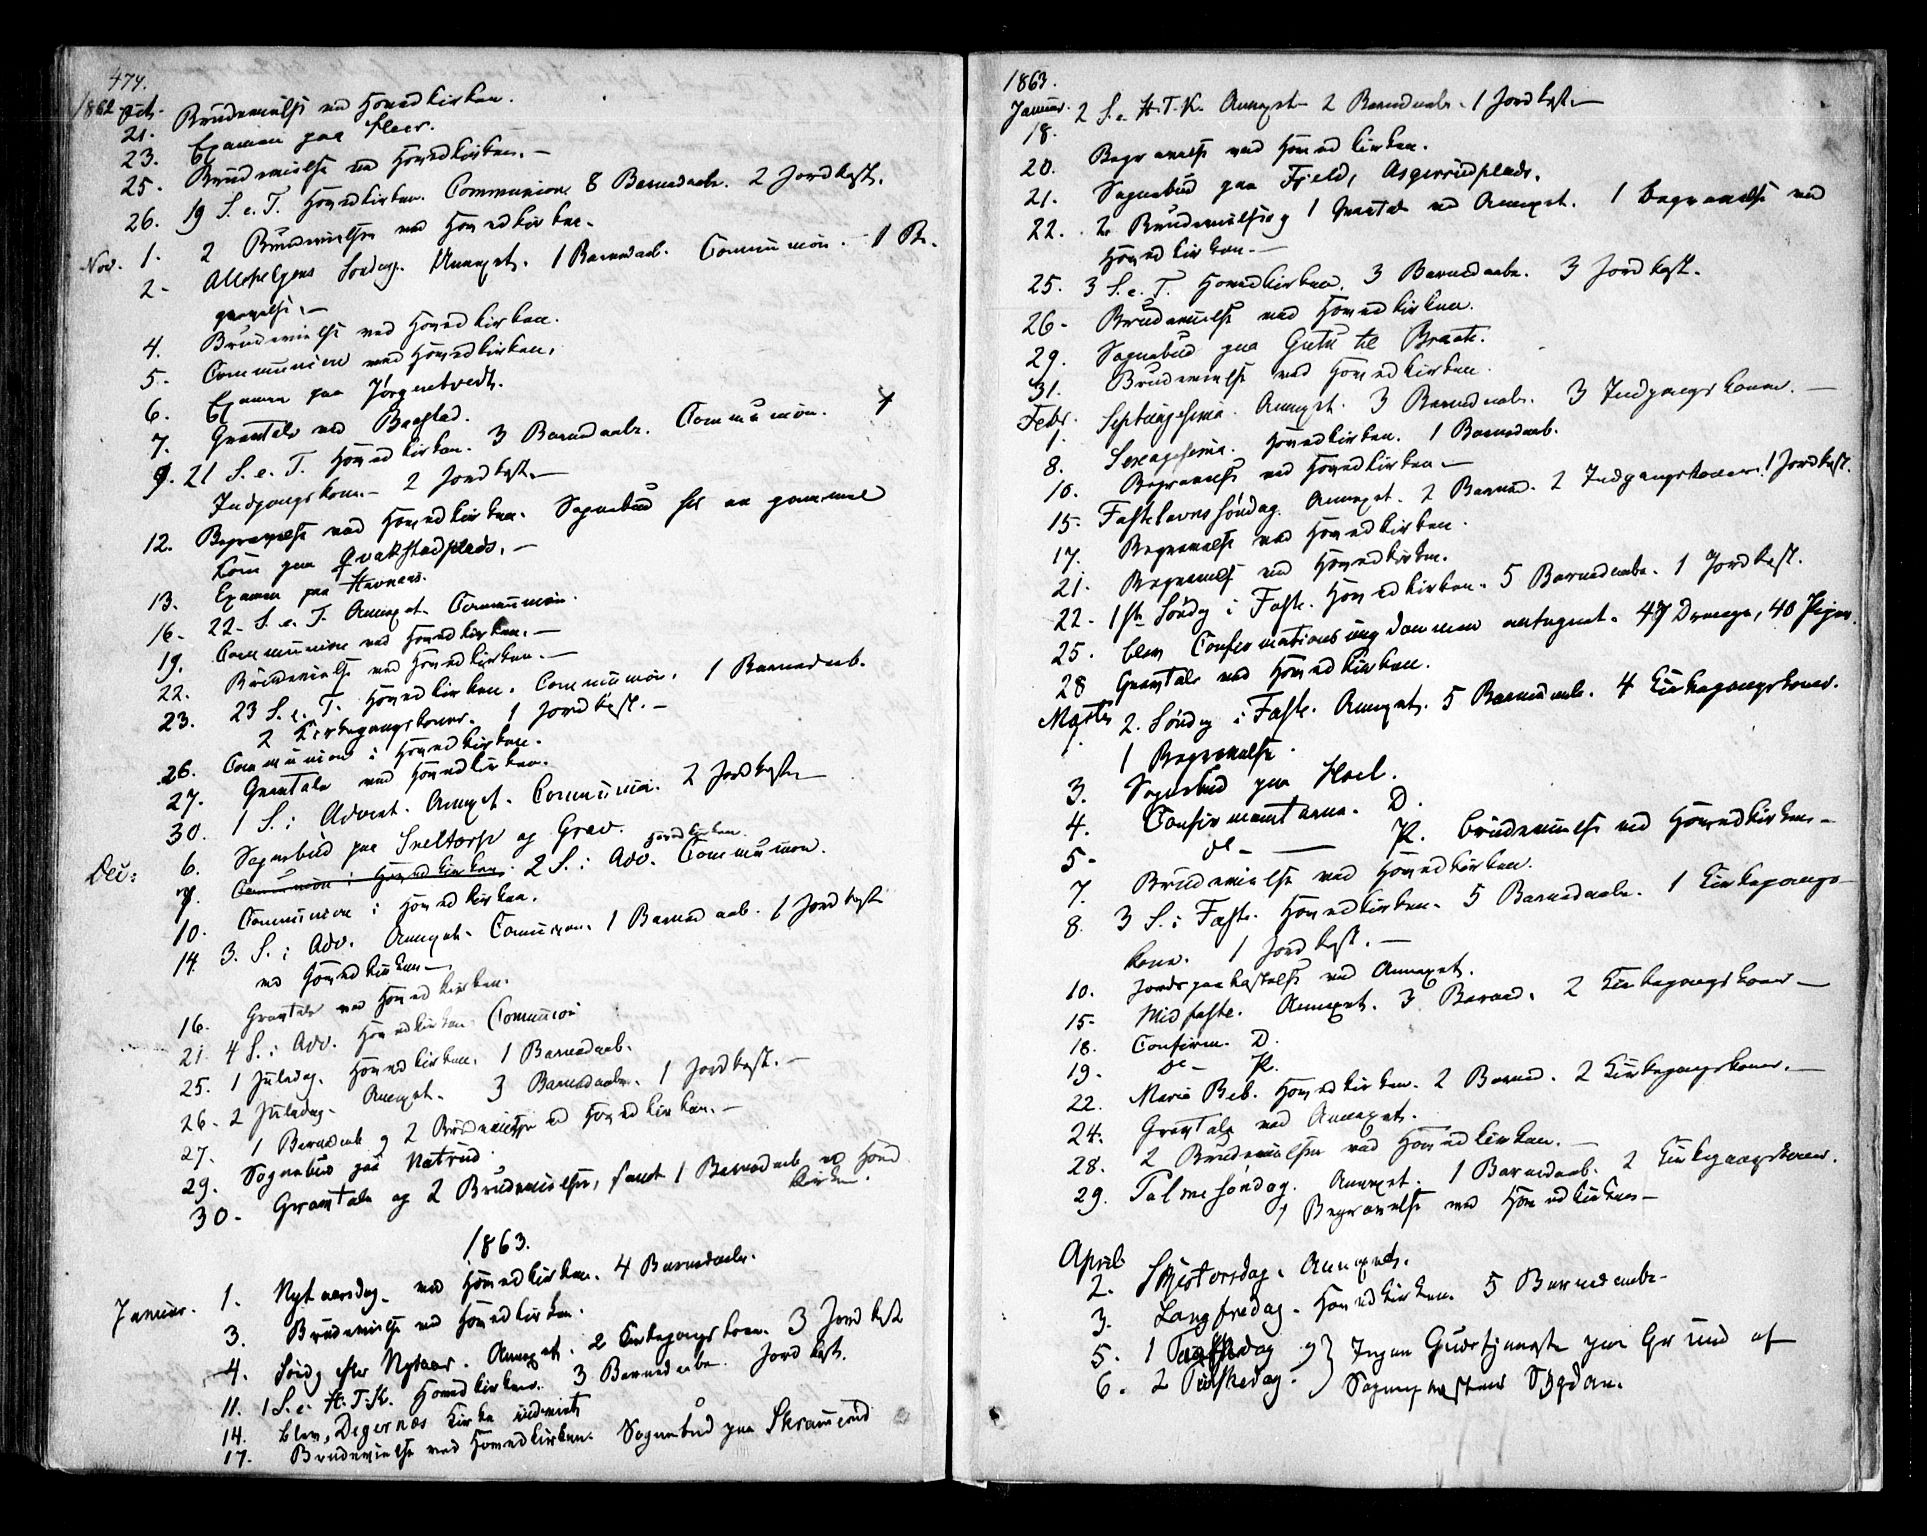 474.
1862 Oct.
21. Brudevielse ved Hovedkirken.
23. Examen paa
25. Brudevielse ved Hovedkirken. —
26. 19 S. e. T. Hovedkirken. Communion 8 Barnedaab. 2 Jordkast.
Nov. 1. 2 Brudevielser ved Hovedkirken.
2. Allehelgens Søndag. Annexet. 1 Barnedaab. Communion. — 1 Be-
gravelse. —
4. Brudevielse ved Hovedkirken.
5. Communion ved Hovedkirken.
6. Examen paa Jørgentvedt.
7. Gravtale ved Baastad.
9. 21 S. e. T. Hovedkirken. 3 Barnedaab. Communion. 1
Indgangskone. — 2 Jordkast. —
12. Begravelse ved Hovedkirken. Sognebud til en gammel
Kone paa Qvakstadplads. —
13. Examen paa Havnaas.
16. 22 S. e. T. Annexet. Communion.
19. Communion ved Hovedkirken. —
22. Brudevielse ved Hovedkirken. —
23. 23 S. e. T. Hovedkirken. Communion. 1 Barnedaab.
2 Kirkegangskoner. 1 Jordkast. —
26. Communion i Hovedkirken.
27. Gravtale ved Hovedkirken.
30. 1 S. i Advent. Annexet. Communion. 2 Jordkast —
Dec: 6. Sognebud paa Sveltorp og Grav.
7. Communion i Hovedkirken. 2 S. i Adv. Hovedkirken. Communion.
10. Communion i Hovedkirken.
14. 3. S. i Adv. Annexet. Communion. 1 Barnedaab. 1 Jordkast
ved Hovedkirken —
16. Gravtale ved Hovedkirken.
21. 4 S. i Adv. Hovedkirken. Communion
25. 1 Juledag. Hovedkirken. 1 Barnedaab.
26. 2 Juledag. Annexet. 3 Barnedaab. 1 Jordkast. —
27. 1 Barnedaab og 2 Brudevielser ved Hovedkirken. —
29. Sognebud paa Næterud.
30. Gravtale og 2 Brudevielser, samt 1 Barnedaab ved Hoved
kirken.
1863.
Januar. 1. Nytaarsdag. ved Hovedkirken. 4 Barnedaab.
3. Brudevielse ved Hovedkirken.
4. Søndag efter Nytaar. Annexet. 2 Kirkegangskoner. 3 Jordkast
11. 1 S. e. H. T. K. Hovedkirken. 3 Barnedaab. Jordkast.
14. blev Degernæs Kirke indviet
17. Brudevielse ved Hovedkirken. Sognebud paa Skramrud
1863.
Januar. 2 S. e. H. T. K. Annexet 2 Barnedaab. 1 Jordkast —
18.
20. Begravelse ved Hovedkirken.
21. Sognebud paa Fjeld, Asgerrudplads.
22. 2 Brudevielse og 1 Gravtale ved Annexet. 1 Begravelse ved
Hovedkirken —
25. 3 S. e. T. Hovedkirken. 3 Barnedaab. 3 Jordkast.
26. Brudevielse ved Hovedkirken.
29. Sognebud paa Gutu til Braate.
31. Brudevielse ved Hovedkirken.
Febr. Septuagesima. Annexet. 3 Barnedaab. 3 Indgangskoner. —
1.
8. Sexagesima. Hovedkirken. 1 Barnedaab.
10. Begravelse ved Hovedkirken —
15. Fastelavns søndag. Annexet. 2 Barned. 2 Indgangskoner. 1 Jordkast.
17. Begravelse ved Hovedkirken.
21. Begravelse ved Hovedkirken.
22. 1ste Søndag i Faste. Hovedkirken. 5 Barnedaab. 1 Jordkast.
25. blev Confirmationsungdommen antegnet. 47 Drenge, 40 Piger.
28 Gravtale ved Hovedkirken.
Marts 2. Søndag i Faste. Annexet. 5 Barnedaab. 4 Kirkegangskoner.
1.
1 Begravelse.
3. Sognebud paa Hoel.
4. Confirmanterne. D.
5. do — P. Brudevielse ved Hovedkirken —
7. Brudevielse ved Hovedkirken.
8. 3 S. i Faste. Hovedkirken. 5 Barnedaab. 1 Kirkegangs-
kone. 1 Jordkast. —
10. Jordspaakastelse ved Annexet.
15. Midfaste. Annexet. 3 Barned. 2 Kirkegangskoner —
18. Confirm. D.
19. do — P.
22. Maria Beb. Hovedkirken. 2 Barned. 2 Kirkegangskoner. —
24. Gravtale ved Annexet.
28. 2 Brudevielser ved Hovedkirken. —
29. Palmesøndag. Annexet. 1 Barnedaab. 2 Kirkegangskoner.
1 Begravelse ved Hovedkirken —
April
2. Skjertorsdag. Annexet.
3. Langfredag. Hovedkirken. 5 Barnedaab —
5. 1 Paaskedag og } Ingen Gudstjeneste paa Grund af
6. 2 Paaskedag. } Sognepræstens Sygdom.